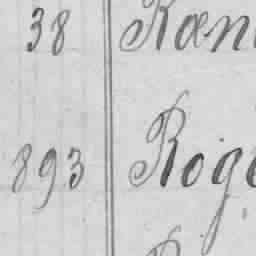 38 Ken
893 Roge